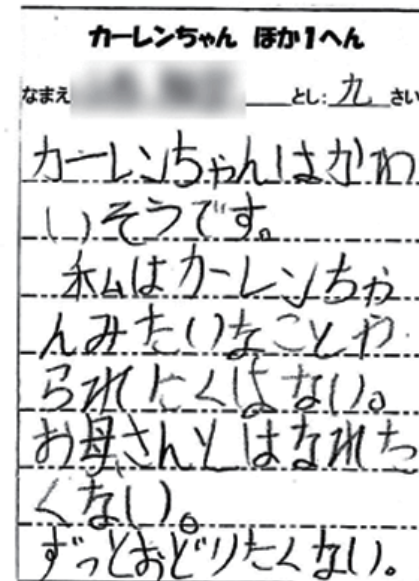 カーレンちゃん ほか1へん
なまえ とし:九さい
カーレンちゃんはかわ
いそうです。
私はカーレンちゃ
んみたいなことや
られたくはない。
お母さんとはなれた
くない。
ずっとおどりたくない。